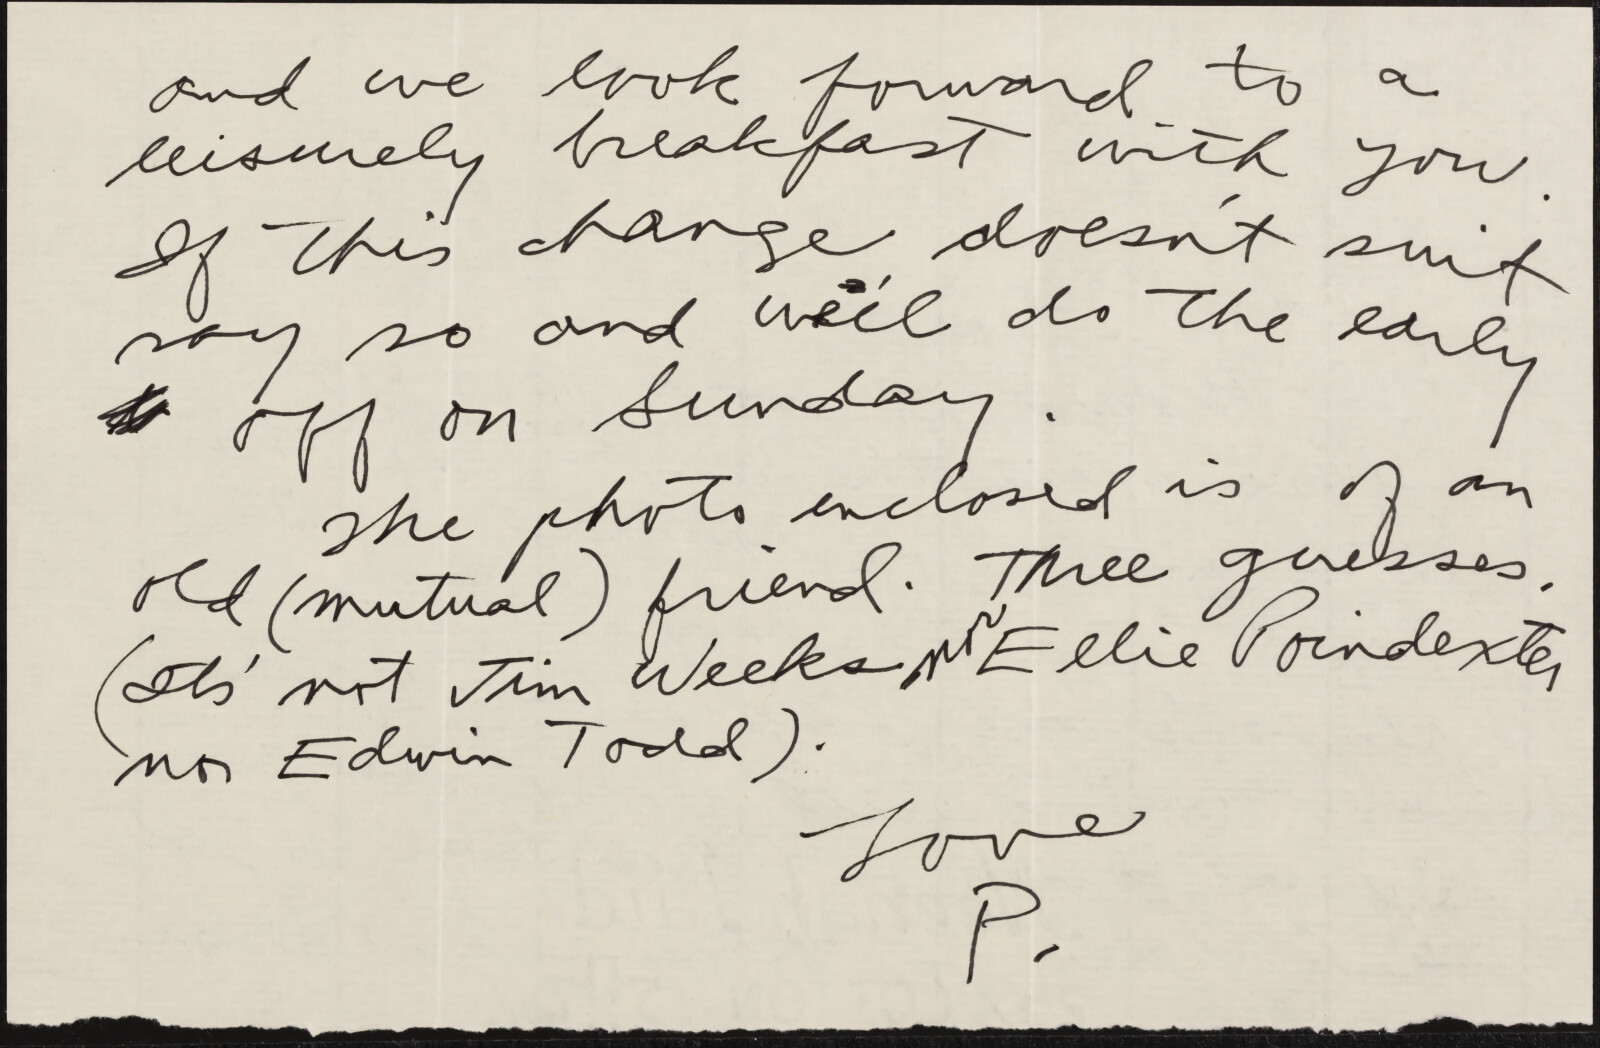 and we look forward to a
leisurely breakfast with you.
If this change doesn't suit
say so and we'll do the early
off on Sunday.
The photo enclosed is of an
old (mutual) friend. Three guesses.
(It's not Jim Weeks, nor Ellie Poindexter
nor Edwin Todd).
Love
P.